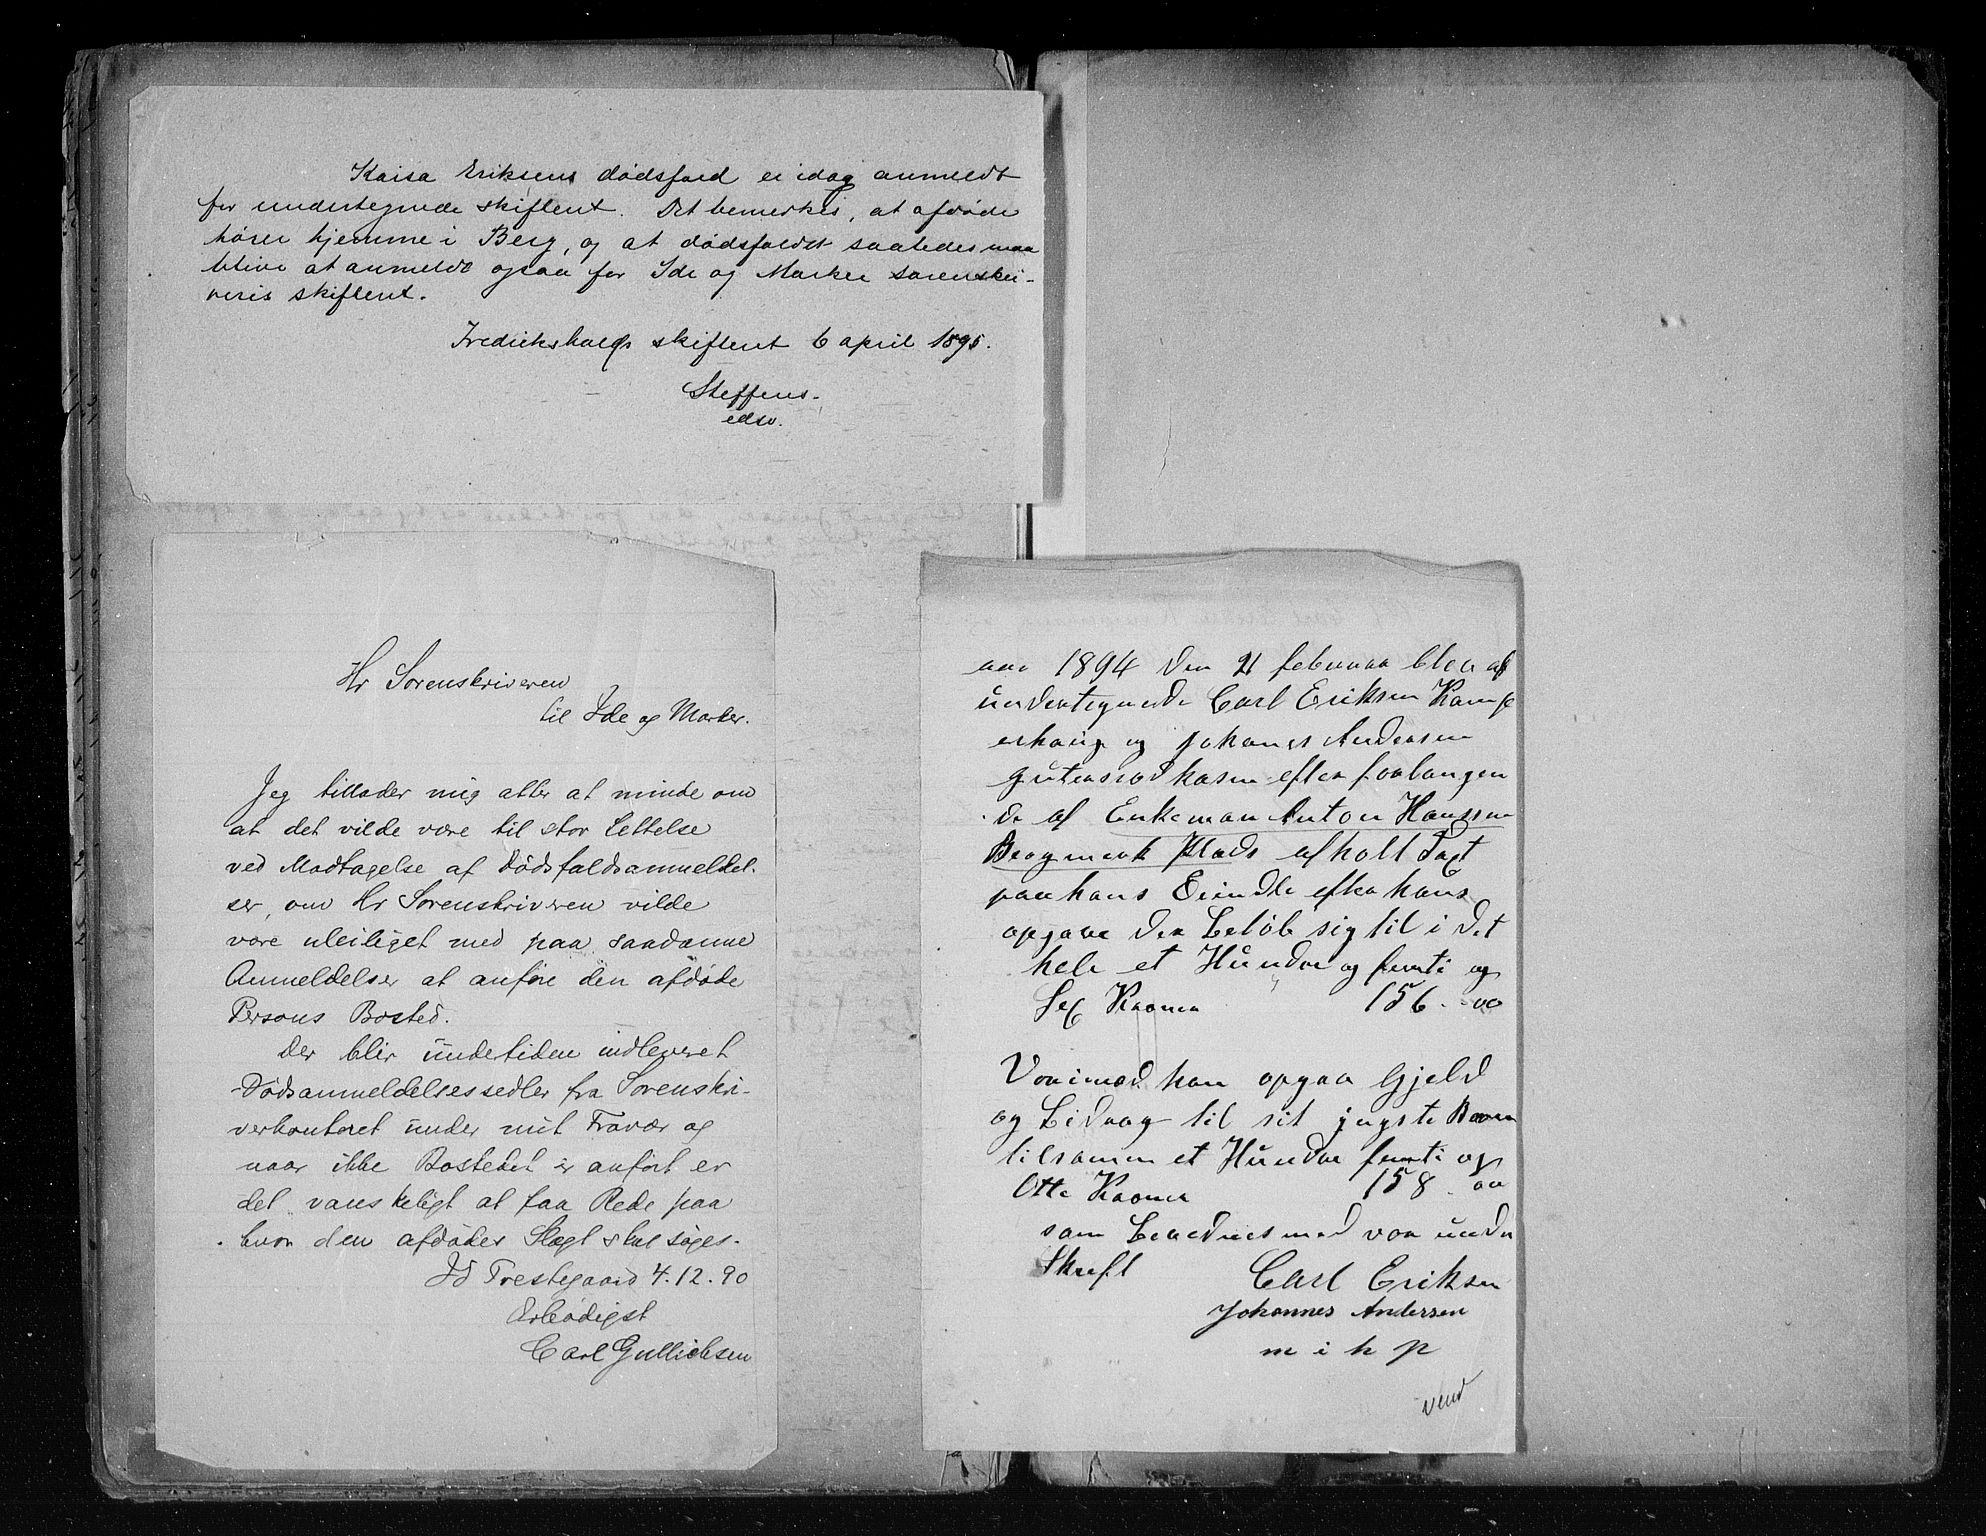 Kaisa Eriksens dødsfald er idag anmeldt
for undertegnede skifteret. Det bemerkes, at afdøde
hører hjemme i Berg, og at dødsfaldet saaledes maa
blive at anmelde ogsaa for Ide og Marker sorenskri-
veris skifteret.
Fredrikshalds skifteret 6 april 1895.
Steffens.
edsv.
Hr Sorenskriveren
til Ide og Marker.
Jeg tillader mig atter at minde om
at det vilde være til stor Lettelse
ved Modtagelse af Dødsfaldsanmeldel-
ser, om Hr Sorenskriveren vilde
være uleiliget med paa saadanne
Anmeldelser at anføre den afdøde
Persons Bosted.
Der blir undetiden indleveret
Dødsanmeldelsessedler fra Sorenskri-
verkontoret under mit Fravær og
naar ikke Bostedet er anført er
det vanskeligt at faa Rede paa
hvor den afdødes Slægt skal søges.
Id Prestegaard 4.12.90
Ærbødigst
Carl Gullichsen
aar 1894 den 21 februar blev af
undertegnede Carl Eriksen
og Johanes Andersen
efter forlangen
de af Enkeman Anton Hanssen
Bergmerk Plads afholt Taxt
paa hans Eiendele efter hans
opgave der Beløb sig til i det
hele et Hundre og femti og
Sex Kroner 156. 00
Vorimod han opgav Gjeld
og Bidrag til sit yngste Barn
tilsamen et Hundre femti og
Otte Kroner 158. 00
som Bevidnes med vor under
Skreft
Carl Eriksen
Johannes Andersen
m i h p
vend